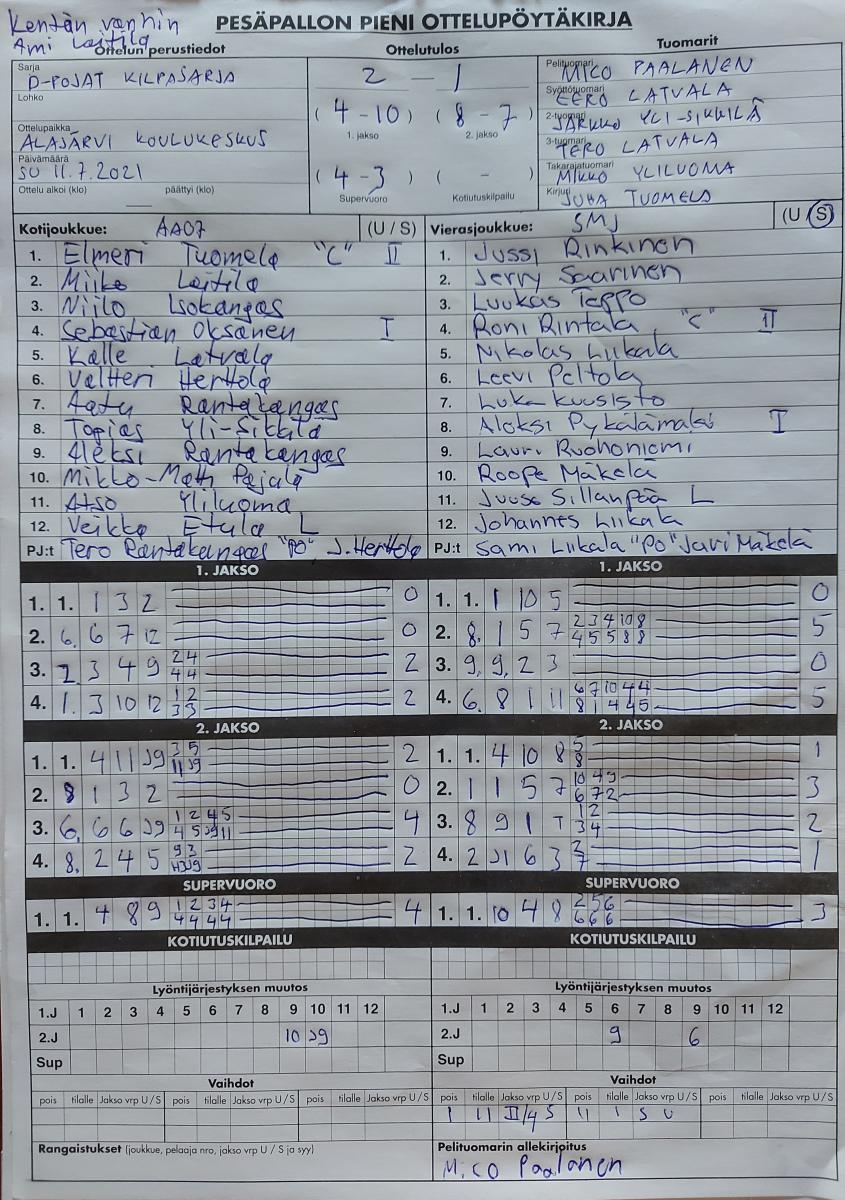 Kentän vanhin
Ami Laitila
PESÄPALLON PIENI OTTELUPÖYTÄKIRJA
Ottelun perustiedot
Ottelutulos
Tuomarit
Sarja
D-POJAT KILPASARJA
Lohko
Ottelupaikka
ALAJÄRVI KOULUKESKUS
Päivämäärä
SU 11.7.2021
Ottelu alkoi (klo) päättyi (klo)
2 – 1
(4 - 10) (8 - 7)
1. jakso 2. jakso
(4 - 3) ( - )
Supervuoro Kotiutuskilpailu
Pelituomari
MICO PAALANEN
Syöttötuomari
EERO LATVALA
2-tuomari
JARKKO YLI-SIKKILÄ
3-tuomari
TERO LATVALA
Takarajatuomari
MIKKO YLILUOMA
Kirjuri
JUHA TUOMELA
Kotijoukkue: AA07 (U / S)
1. Elmeri Tuomela "C" II
2. Miika Laitila
3. Niilo Isokangas
4. Sebastian Oksanen I
5. Kalle Latvala
6. Valtteri Herttola
7. Aatu Rantakangas
8. Topias Yli-Sikkilä
9. Aleksi Rantakangas
10. Mikko-Matti Pajala
11. Atso Yliluoma
12. Veikko Etula L
PJ:t Tero Rantakangas "PO" J. Herttola
Vierasjoukkue: SMJ (U / S)
1. Jussi Rinkinen
2. Jerry Saarinen
3. Luukas Teppo
4. Roni Rintala "C" II
5. Nikolas Liikala
6. Leevi Peltola
7. Luka Kuusisto
8. Aleksi Pykälämäki I
9. Lauri Ruohoniemi
10. Roope Mäkelä
11. Juuso Sillanpää L
12. Johannes Liikala
PJ:t Sami Liikala "PO" Jari Mäkelä
1. JAKSO
1. 1. 1 3 2 0
2. 6. 6 7 12 0
3. 2. 3 4 9 2 4 2
4 4
4. 1. 3 10 12 1 2 2
3 3
2. JAKSO
1. 1. 4 11 J9 3 5 2
11 J9
2. 8 1 3 2 0
3. 6. 6 6 J9 1 2 4 5 4
4 5 J9 11
4. 8. 2 4 5 9 3 2
SUPERVUORO
1. 1. 4 8 9 1 2 3 4 4
4 4 4 4
KOTIUTUSKILPAILU
1. JAKSO
1. 1. 1 10 5 0
2. 8. 1 5 7 2 3 4 10 8 5
4 5 5 8 8
3. 9. 9. 2 3 0
4. 6. 8 1 11 6 7 10 4 4 5
8 1 4 4 5
2. JAKSO
1. 1. 4 10 8 5 1
8
2. 1 1 5 7 10 4 9 3
6 7 2
3. 8 9 1 T 1 2 2
3 4
4. 2 J1 6 3 3 1
7
SUPERVUORO
1. 1. 10 4 8 2 5 6 3
6 6 6
KOTIUTUSKILPAILU
Lyöntijärjestyksen muutos
1.J 1 2 3 4 5 6 7 8 9 10 11 12
2.J 10 J9
Sup
Vaihdot
pois tilalle Jakso vrp U / S pois tilalle Jakso vrp U / S pois tilalle Jakso vrp U / S
Rangaistukset (joukkue, pelaaja nro, jakso vrp U / S ja syy)
Lyöntijärjestyksen muutos
1.J 1 2 3 4 5 6 7 8 9 10 11 12
2.J 9 6
Sup
Vaihdot
pois tilalle Jakso vrp U / S pois tilalle Jakso vrp U / S pois tilalle Jakso vrp U / S
1 11 II/4 S 11 1 S U
Pelituomarin allekirjoitus
Mico Paalanen